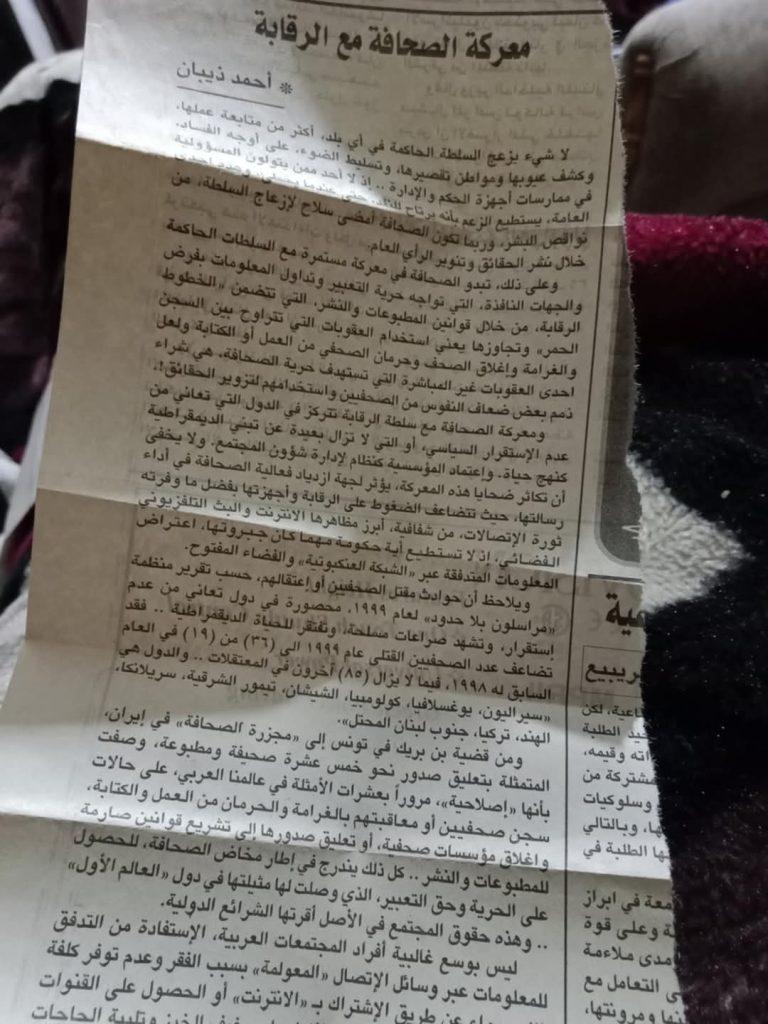 معركة الصحافة مع الرقابة
* أحمد ذيبان
لا شيء يزعج السلطة الحاكمة في أي بلد، أكثر من متابعة عملها،
وكشف عيوبها ومواطن تقصيرها، وتسليط الضوء، على أوجه الفساد،
في ممارسات أجهزة الحكم والإدارة .. إذ لا أحد ممن يتولون المسؤولية
العامة، يستطيع الزعم بأنه يرتاح للنقد، حتى عندما
نواقص للبشر، وربما تكون الصحافة أمضى سلاح لإزعاج السلطة، من
خلال نشر الحقائق وتنوير الرأي العام.
وعلى ذلك، تبدو الصحافة في معركة مستمرة مع السلطات الحاكمة
والجهات النافذة، التي تواجه حرية التعبير وتداول المعلومات بفرض
الرقابة، من خلال قوانين المطبوعات والنشر، التي تتضمن «الخطوط
الحمر» وتجاوزها يعني استخدام العقوبات التي تتراوح بين السجن
والغرامة وإغلاق الصحف وحرمان الصحفي من العمل أو الكتابة ولعل
احدى العقوبات غير المباشرة التي تستهدف حرية الصحافة، هي شراء
ذمم بعض ضعاف النفوس من الصحفيين واستخدامهم لتزوير الحقائق!.
ومعركة الصحافة مع سلطة الرقابة تتركز في الدول التي تعاني من
عدم الإستقرار السياسي، أو التي لا تزال بعيدة عن تبني الديمقراطية
كنهج حياة. وإعتماد المؤسسية كنظام لإدارة شؤون المجتمع. ولا يخفى
أن تكاثر ضحايا هذه المعركة، يؤثر لجهة ازدياد فعالية الصحافة في أداء
رسالتها، حيث تتضاعف الضغوط على الرقابة وأجهزتها بفضل ما وفرته
ثورة الإتصالات، من شفافية، أبرز مظاهرها الانترنت والبث التلفزيوني
الفضائي، اذ لا تستطيع أية حكومة مهما كان جبروتها، اعتراض
المعلومات المتدفقة عبر «الشبكة العنكبوتية» والفضاء المفتوح.
ويلاحظ أن حوادث مقتل الصحفيين أو إعتقالهم، حسب تقرير منظمة
«مراسلون بلا حدود» لعام ١٩٩٩، محصورة في دول تعاني من عدم
إستقرار، وتشهد صراعات مسلحة، وتفتقر للحياة الديقمراطية .. فقد
تضاعف عدد الصحفيين القتلى عام ١٩٩٩ الى (٣٦) من (١٩) في العام
السابق له ١٩٩٨، فيما لا يزال (٨٥) آخرون في المعتقلات .. والدول هي
«سيراليون، يوغسلافيا، كولومبيا، الشيشان، تيمور الشرقية، سريلانكا،
الهند، تركيا، جنوب لبنان المحتل».
ومن قضية بن بريك في تونس إلى «مجزرة الصحافة» في إيران،
المتمثلة بتعليق صدور نحو خمس عشرة صحيفة ومطبوعة، وصفت
بأنها «إصلاحية»، مروراً بعشرات الأمثلة في عالمنا العربي، على حالات
سجن صحفيين أو معاقبتهم بالغرامة والحرمان من العمل والكتابة،
واغلاق مؤسسات صحفية، أو تعليق صدورها إلى تشريع قوانين صارمة
للمطبوعات والنشر .. كل ذلك يندرج في إطار مخاض الصحافة، للحصول
على الحرية وحق التعبير، الذي وصلت لها مثيلتها في دول «العالم الأول»
.. وهذه حقوق المجتمع في الأصل أقرتها الشرائع الدولية.
ليس بوسع غالبية أفراد المجتمعات العربية، الإستفادة من التدفق
للمعلومات عبر وسائل الإتصال «المعولمة» بسبب الفقر وعدم توفر كلفة
عن طريق الإشتراك بـ «الانترنت» أو الحصول على القنوات
الخبز وتلبية الحاجات
مية
ريبيع
اعية، لكن
يد الطلبة
اته وقيمه،
مشتركة من
وسلوكيات
ها، وبالتالي
ها الطلبة في
معة في ابراز
ة وعلى قوة
مدى ملاءمة
ى التعامل مع
ها ومرونتها،